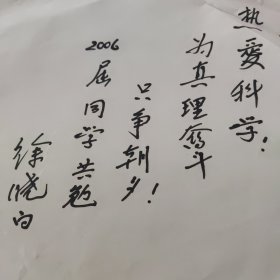 热爱科学!
为真理奋斗
只争朝夕!
2006
届同学共勉
徐晓白